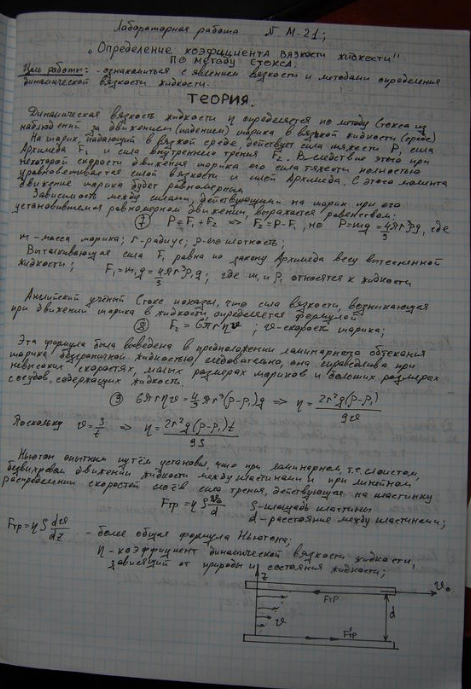 Лабораторная работа N M-21;
"Определение коэфициента вязкости жидкости"
по методу Стокса.
Цель работы: - ознакомиться с явлением вязкости и методами определения
динамической вязкости жидкости.
ТЕОРИЯ.
Динамическая вязкость жидкости η определяется по методу Стокса из
наблюдений за движением (падением) шарика в вязкой жидкости (среде)
На шарик, падающий в вязкой среде, действует сила тяжести P, сила
Архимеда F₁ и сила внутреннего трения F₂. Вследствие этого при
некоторой скорости движения шарика его сила тяжести полностью
уравновешивается силой вязкости и силой Архимеда. С этого момента
движение шарика будет равномерным
Зависимость между силами, действующими на шарик при его
установившемся равномерном движении, выражается равенством:
P = F₁ + F₂ ⇒ F₂ = P - F₁, но P = mg = 4/3 πr³ρg, где
m - масса шарика; r - радиус; ρ - его плотность;
Выталкивающая сила F₁ равна по закону Архимеда весу вытесненной
жидкости; F₁ = m₁g = 4/3 πr³ρ₁g; где m₁ и ρ₁ относятся к жидкости
Английский учёный Стокс показал, что сила вязкости, возникающая
при движении шарика в жидкости, определяется формулой
F₂ = 6πrηϑ; ϑ - скорость шарика;
Эта формула была выведена в предположении ламинарного обтекания
шарика безграничной жидкостью, следовательно, она справедлива при
невысоких скоростях, малых размерах шариков и больших размерах
сосудов, содержащих жидкость.
6πrηϑ = 4/3 πr³(ρ-ρ₁)g ⇒ η = 2r²g(ρ-ρ₁)/9ϑ
Поскольку ⇒ η = 2r²g(ρ-ρ₁)t/9S
Ньютон опытным путём установил, что при ламинарном, т.е. слоистом,
безвихревом движении жидкости между пластинами и при линейном
распределении скоростей слоёв сила трения, действующая на пластинку
Fтр = ηS ϑ₀/d S - площадь пластины
d - расстояние между пластинами;
Fтр = ηS dϑ/dz - более общая формула Ньютона;
η - коэффициент динамической вязкости жидкости,
зависящий от природы и состояния жидкости;
z
ϑ₀
Fтр
ϑ
d
Fтр